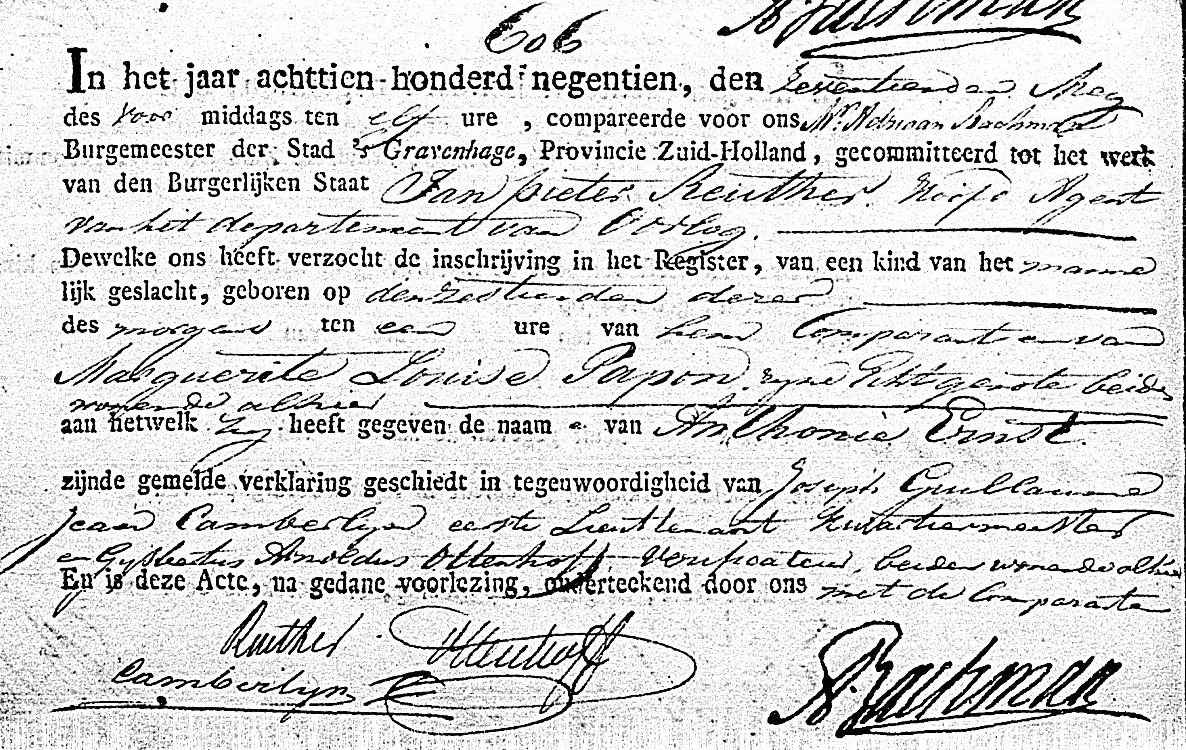 A Bachman
606
In het jaar achttien-honderd negentien, den Zeventienden Mey
des Voor middags ten elf ure, compareerde voor ons Mr. Adriaan Bachman
Burgemeester der Stad 's Gravenhage, Provincie Zuid-Holland, gecommitteerd tot het werk
van den Burgerlijken Staat Jan Pieter Reuther. Hoofd Agent
van het departement van Oorlog.
Dewelke ons heeft verzocht de inschrijving in het Register, van een kind van het manne
lijk geslacht, geboren op den Zestienden dezer
des morgens ten een ure van hem Comparant en van
Marguerite Louise Papon, zyne Echtgenote beide
wonende alhier
aan hetwelk Zy heeft gegeven de naam e van Anthonie Ernst.
zijnde gemelde verklaring geschiedt in tegenwoordigheid van Joseph Guillaume
Jean Camberlyn eerste Lieuttenant Kwartiermeester
en Gysbertus Arnoldus Ottenhoff, Verificateur, beiden wonende alhier
En is deze Acte, na gedane voorlezing, onderteekend door ons met de Comparanten
Reuther Ottenhoff
Camberlyn
A Bachman